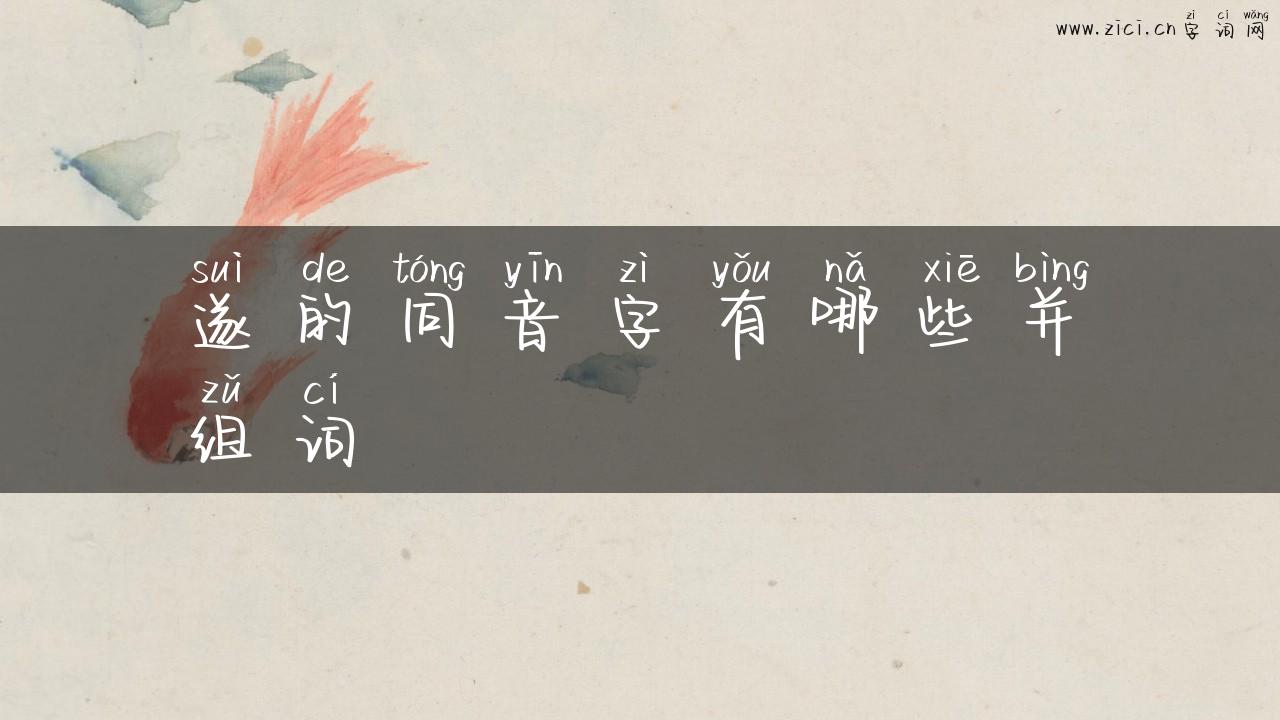 www.zici.cn 字词网
zì cí wǎng
suì de tóng yīn zì yǒu nǎ xiē bìng
遂的同音字有哪些并
zǔ cí
组词